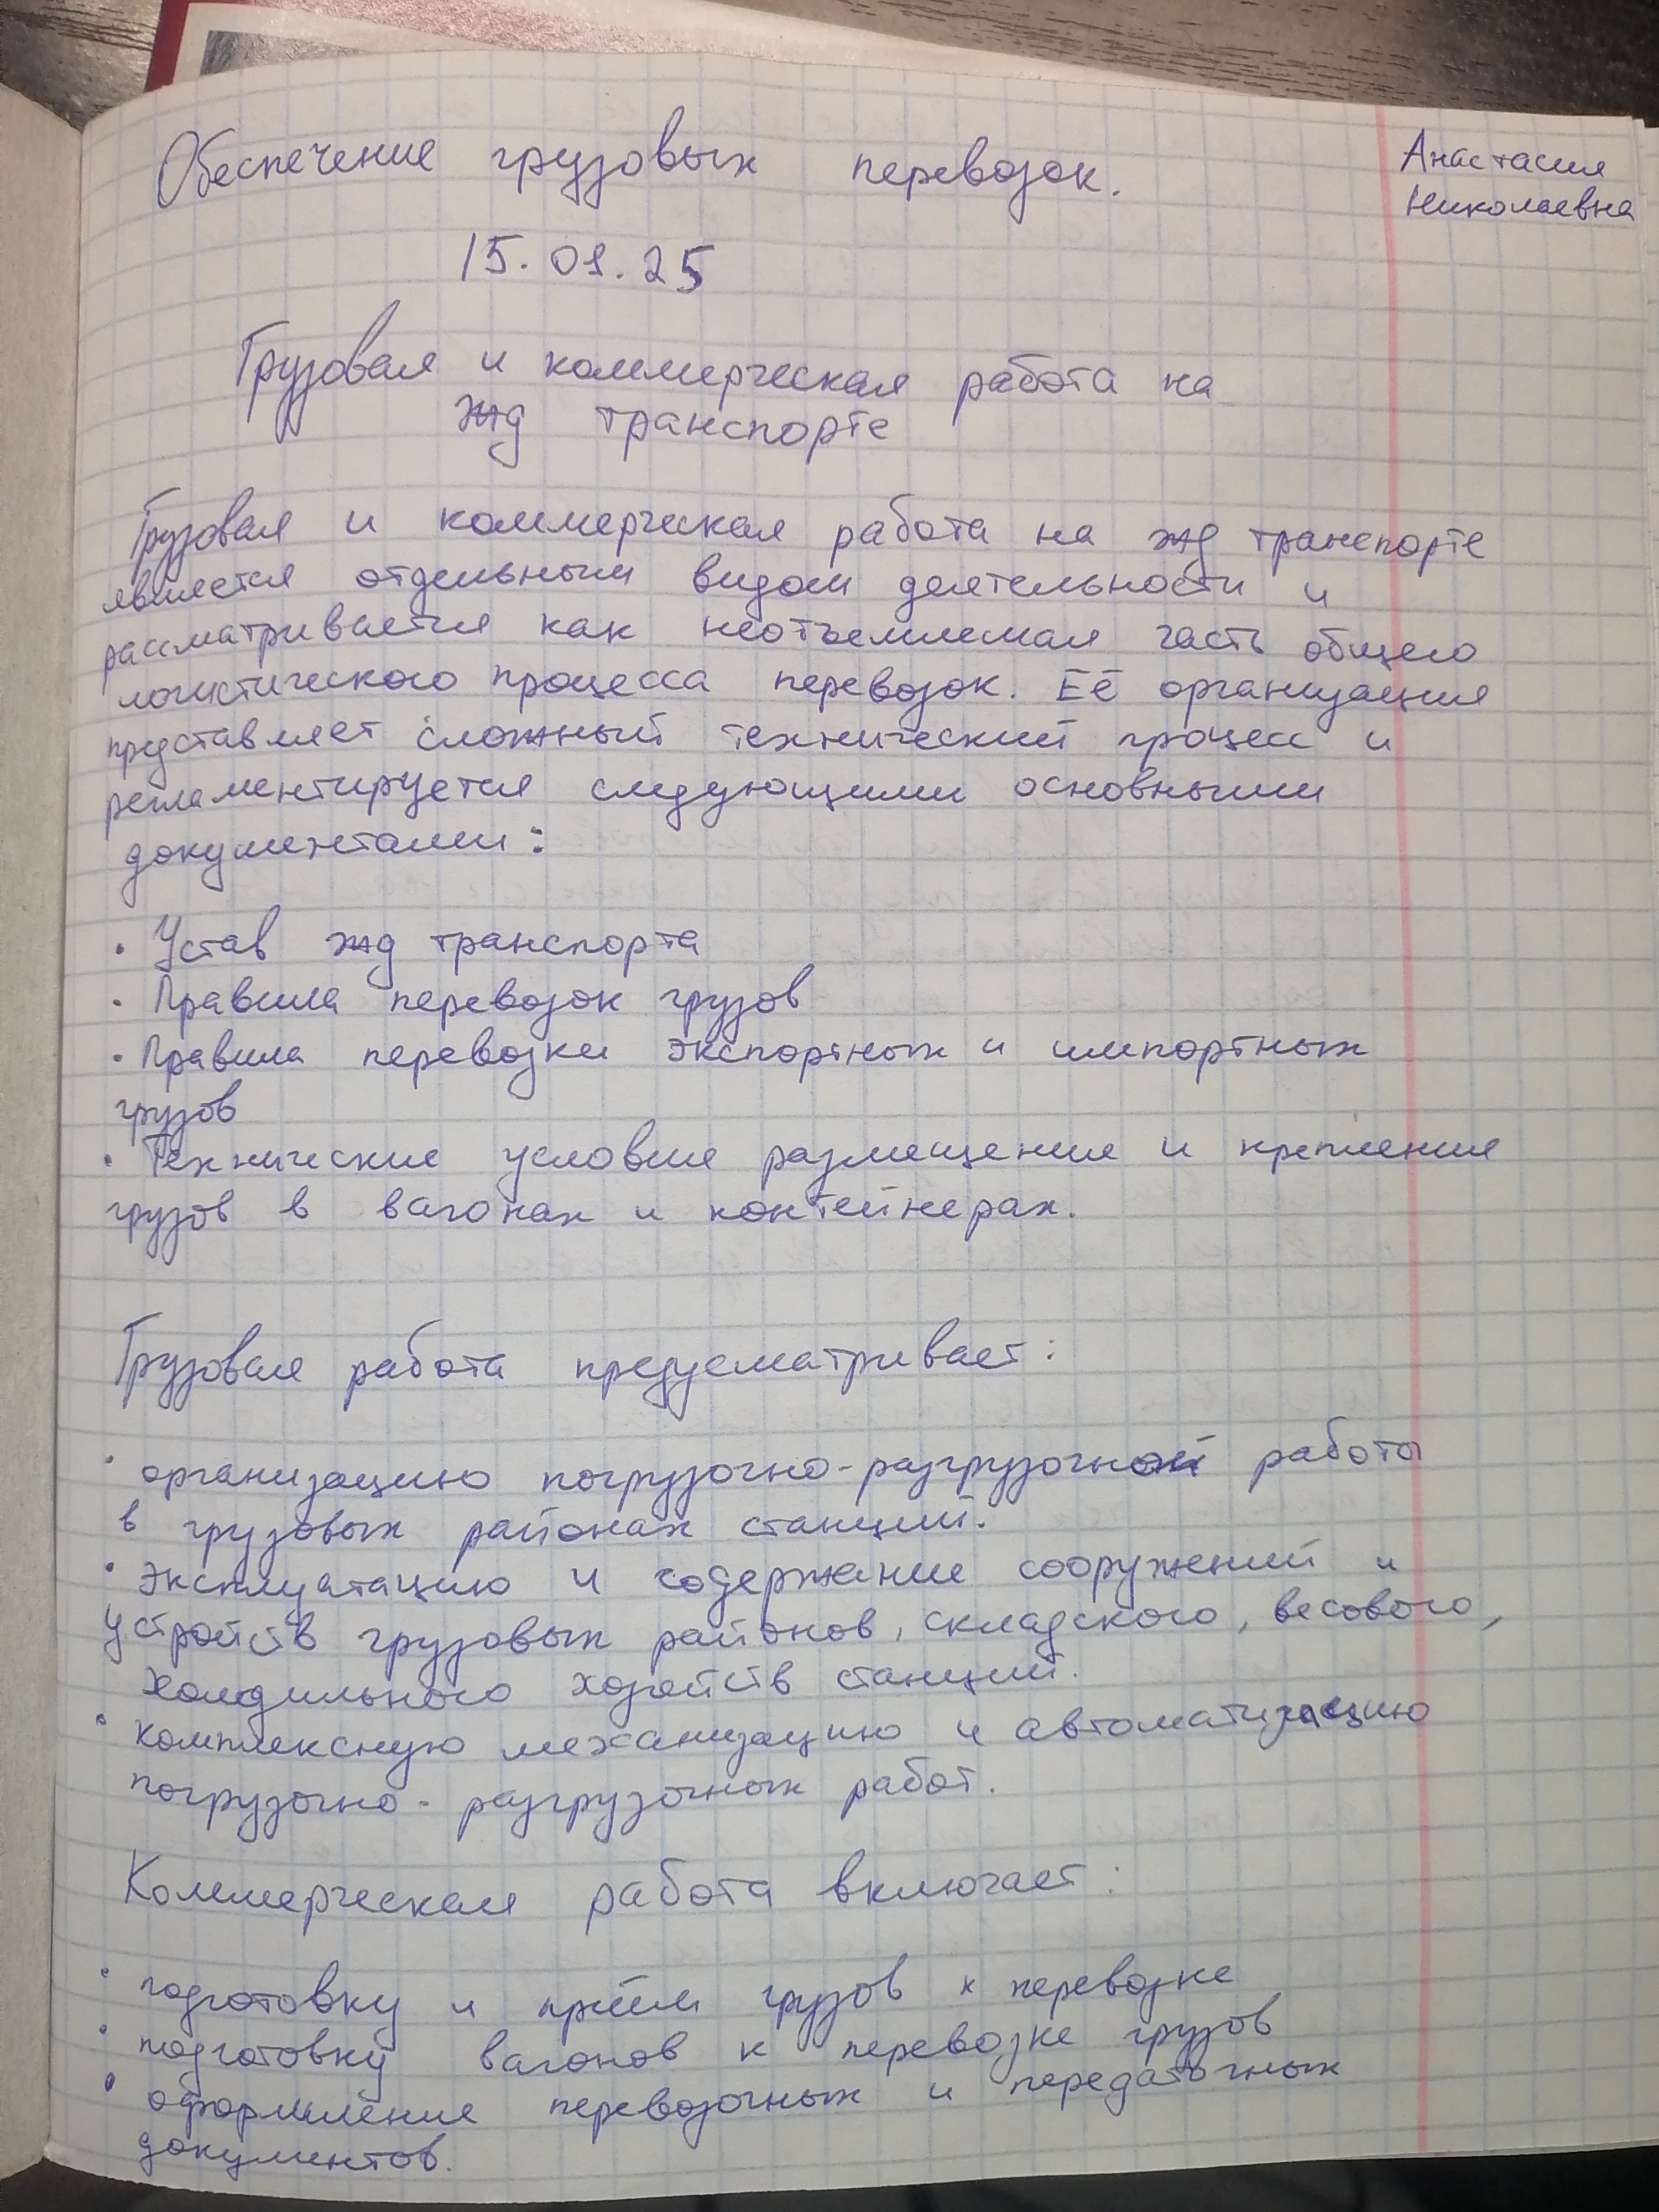 Обеспечение грузовых перевозок.
Анастасия
Николаевна
15.01.25
Грузовая и коммерческая работа на
жд транспорте
Грузовая и коммерческая работа на жд транспорте
является отдельным видом деятельности и
рассматривается как неотъемлемая часть общего
логистического процесса перевозок. Её организация
представляет сложный технический процесс и
регламентируется следующими основными
документами:
· Устав жд транспорта
· Правила перевозок грузов
· Правила перевозки экспортных и импортных
грузов
· Технические условия размещения и крепления
грузов в вагонах и контейнерах.
Грузовая работа предусматривает:
· организацию погрузочно-разгрузочной работы
в грузовых районах станций.
· эксплуатацию и содержание сооружений и
устройств грузовых районов, складского, весового,
холодильного хозяйств станций.
· комплексную механизацию и автоматизацию
погрузочно-разгрузочных работ.
Коммерческая работа включает:
· подготовку и приём грузов к перевозке
· подготовку вагонов к перевозке грузов
· оформление перевозочных и передаточных
документов.